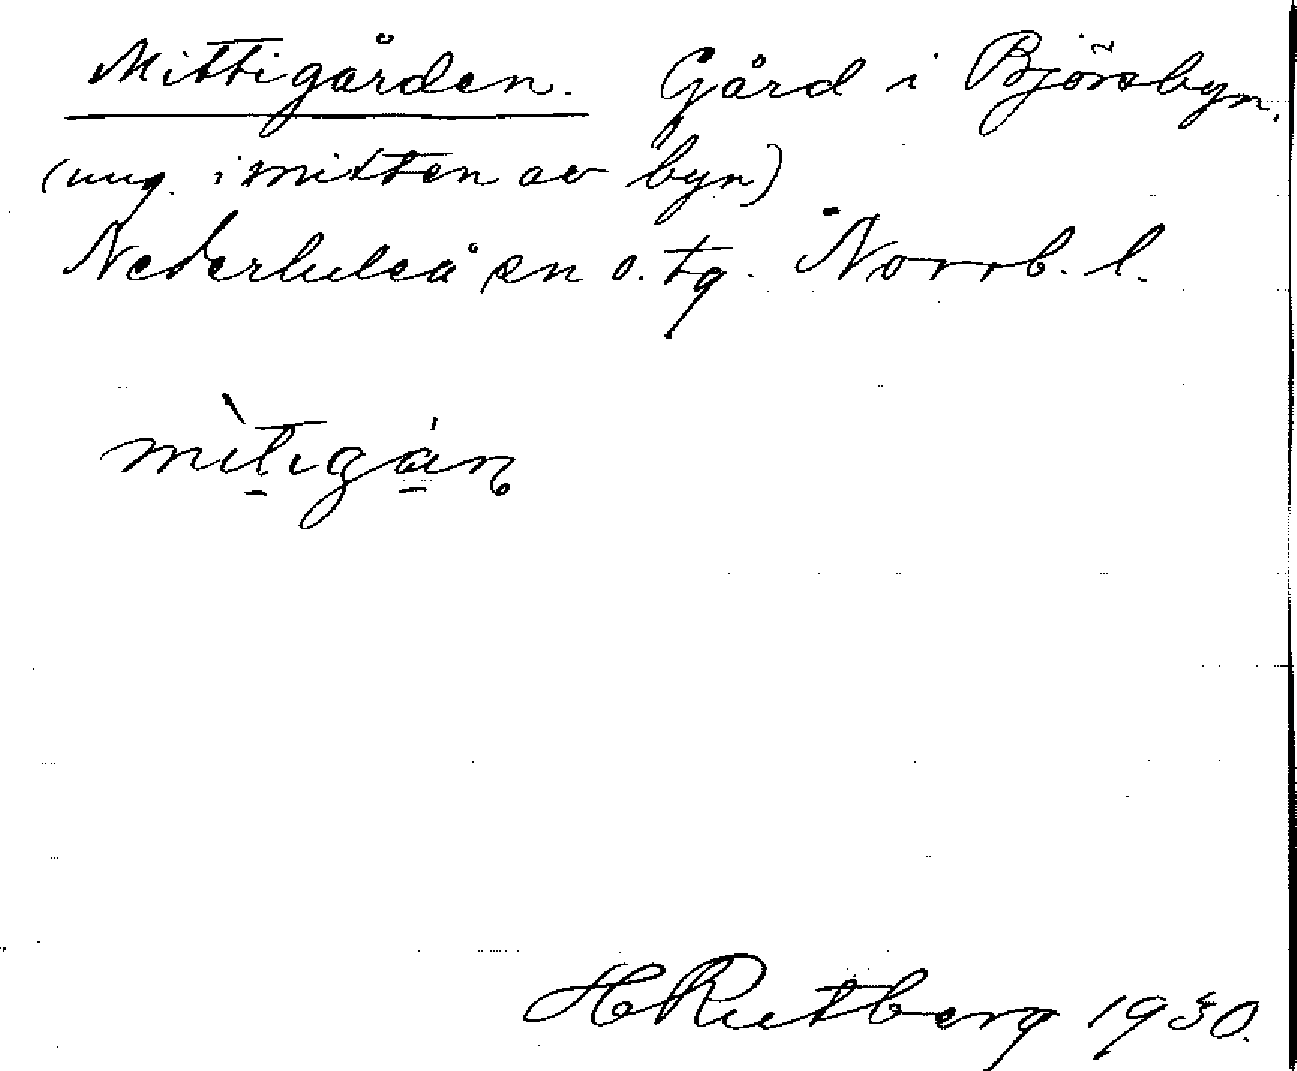 Mittigården. Gård i Björsbyn.
(ung. i mitten av byn)
Nederluleå sn o. tg. Norrb. l.
mìtigán
H Rutberg 1930.